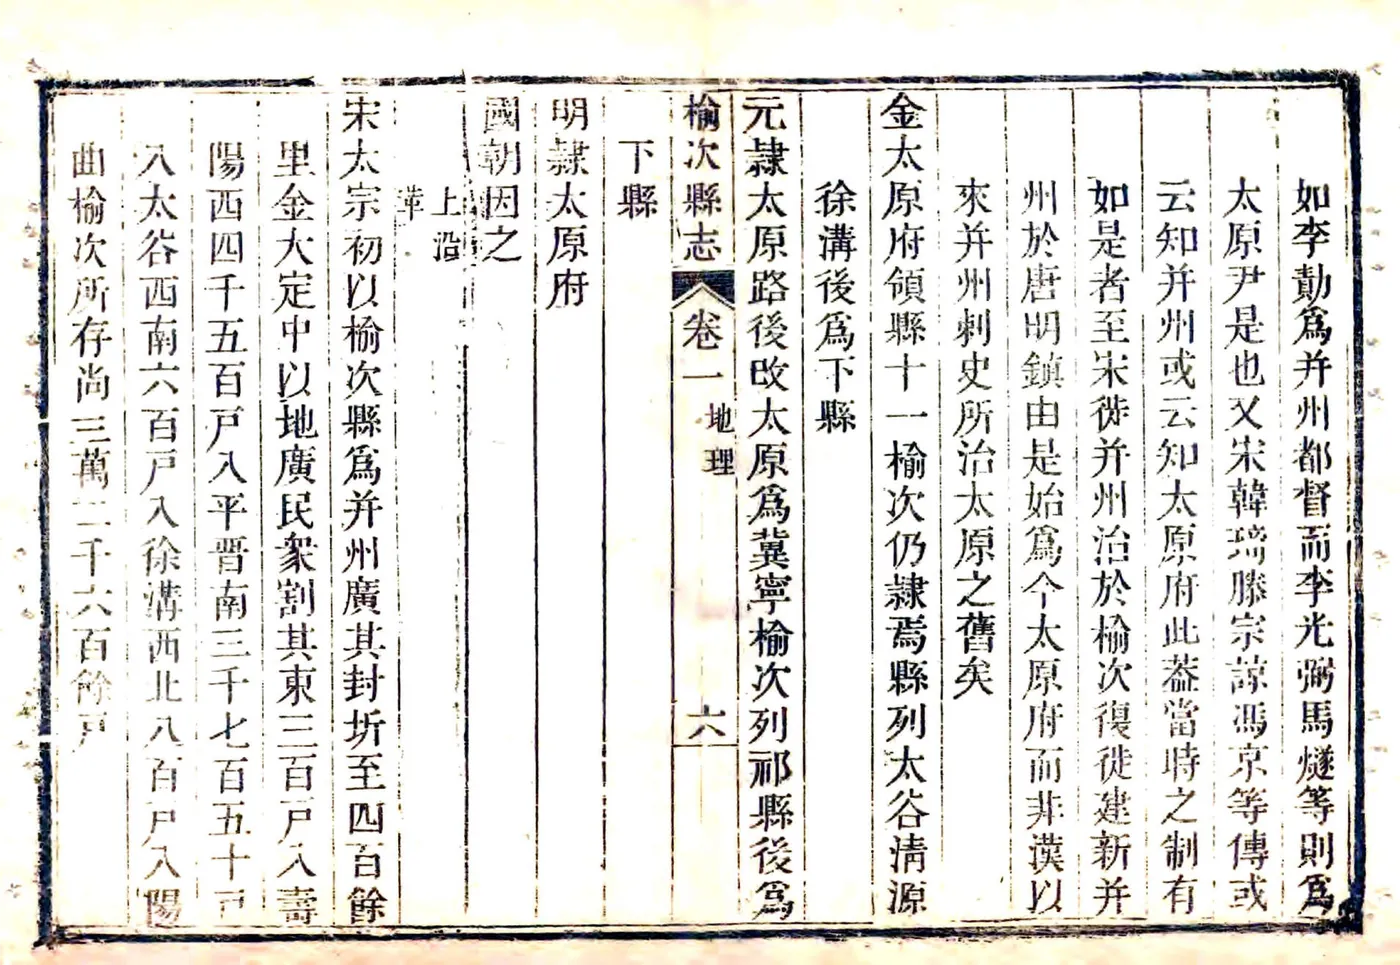 如李勣爲并州都督而李光弼馬燧等則爲
太原尹是也又宋韓琦滕宗諒馮京等傳或
云知并州或云知太原府此葢當時之制有
如是者至宋徙并州治於榆次復徙建新并
州於唐明鎮由是始爲今太原府而非漢以
來并州刺史所治太原之舊矣
金太原府領縣十一榆次仍隷焉縣列太谷清源
徐溝後爲下縣
元隷太原路後改太原爲冀寧榆次列祁縣後爲
榆次縣志 卷一 地理 六
下縣
明隷太原府
國朝因之
上沿
革
宋太宗初以榆次縣爲并州廣其封圻至四百餘
里金大定中以地廣民衆割其東三百戸入壽
陽西四千五百戸入平晋南三千七百五十戸
入太谷西南六百戸入徐溝西北八百戸入陽
曲榆次所存尚三萬二千六百餘戸